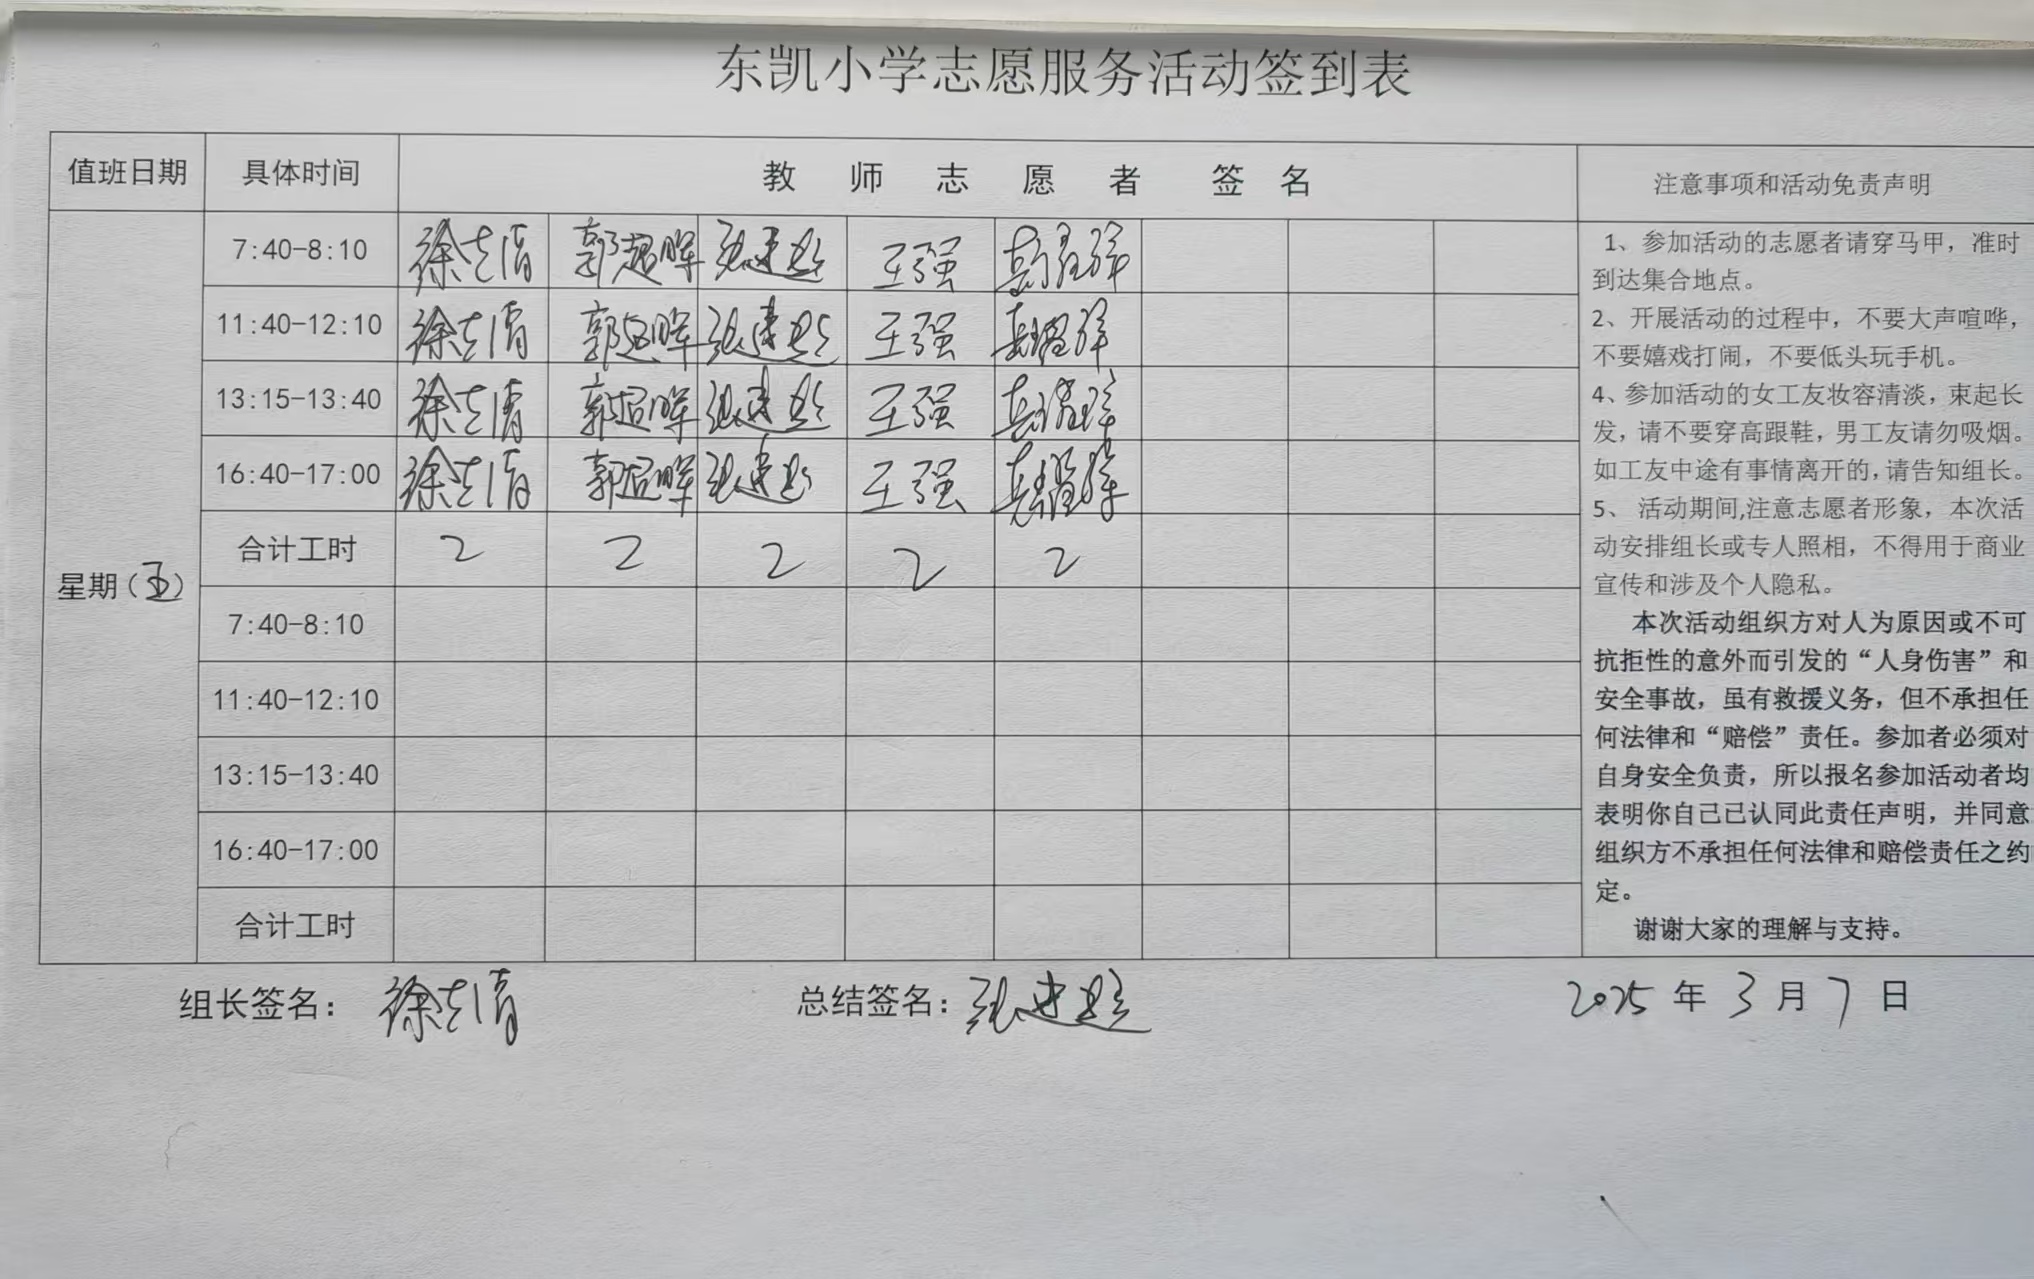 东凯小学志愿服务活动签到表
值班日期 具体时间 教师志愿者签名 注意事项和活动免责声明
星期(五)
7:40-8:10 徐志清 郭超晖 张建超 王强
11:40-12:10 徐志清 郭超晖 张建超 王强
13:15-13:40 徐志清 郭超晖 张建超 王强
16:40-17:00 徐志清 郭超晖 张建超 王强
合计工时 2 2 2 2 2
7:40-8:10
11:40-12:10
13:15-13:40
16:40-17:00
合计工时
1、参加活动的志愿者请穿马甲，准时
到达集合地点。
2、开展活动的过程中，不要大声喧哗，
不要嬉戏打闹，不要低头玩手机。
4、参加活动的女工友妆容清淡，束起长
发，请不要穿高跟鞋，男工友请勿吸烟。
如工友中途有事情离开的，请告知组长。
5、 活动期间,注意志愿者形象，本次活
动安排组长或专人照相，不得用于商业
宣传和涉及个人隐私。
本次活动组织方对人为原因或不可
抗拒性的意外而引发的“人身伤害”和
安全事故，虽有救援义务，但不承担任
何法律和“赔偿”责任。参加者必须对
自身安全负责，所以报名参加活动者均
表明你自己已认同此责任声明，并同意
组织方不承担任何法律和赔偿责任之约
定。
谢谢大家的理解与支持。
组长签名：徐志清 总结签名：张建超 2025年3月7日